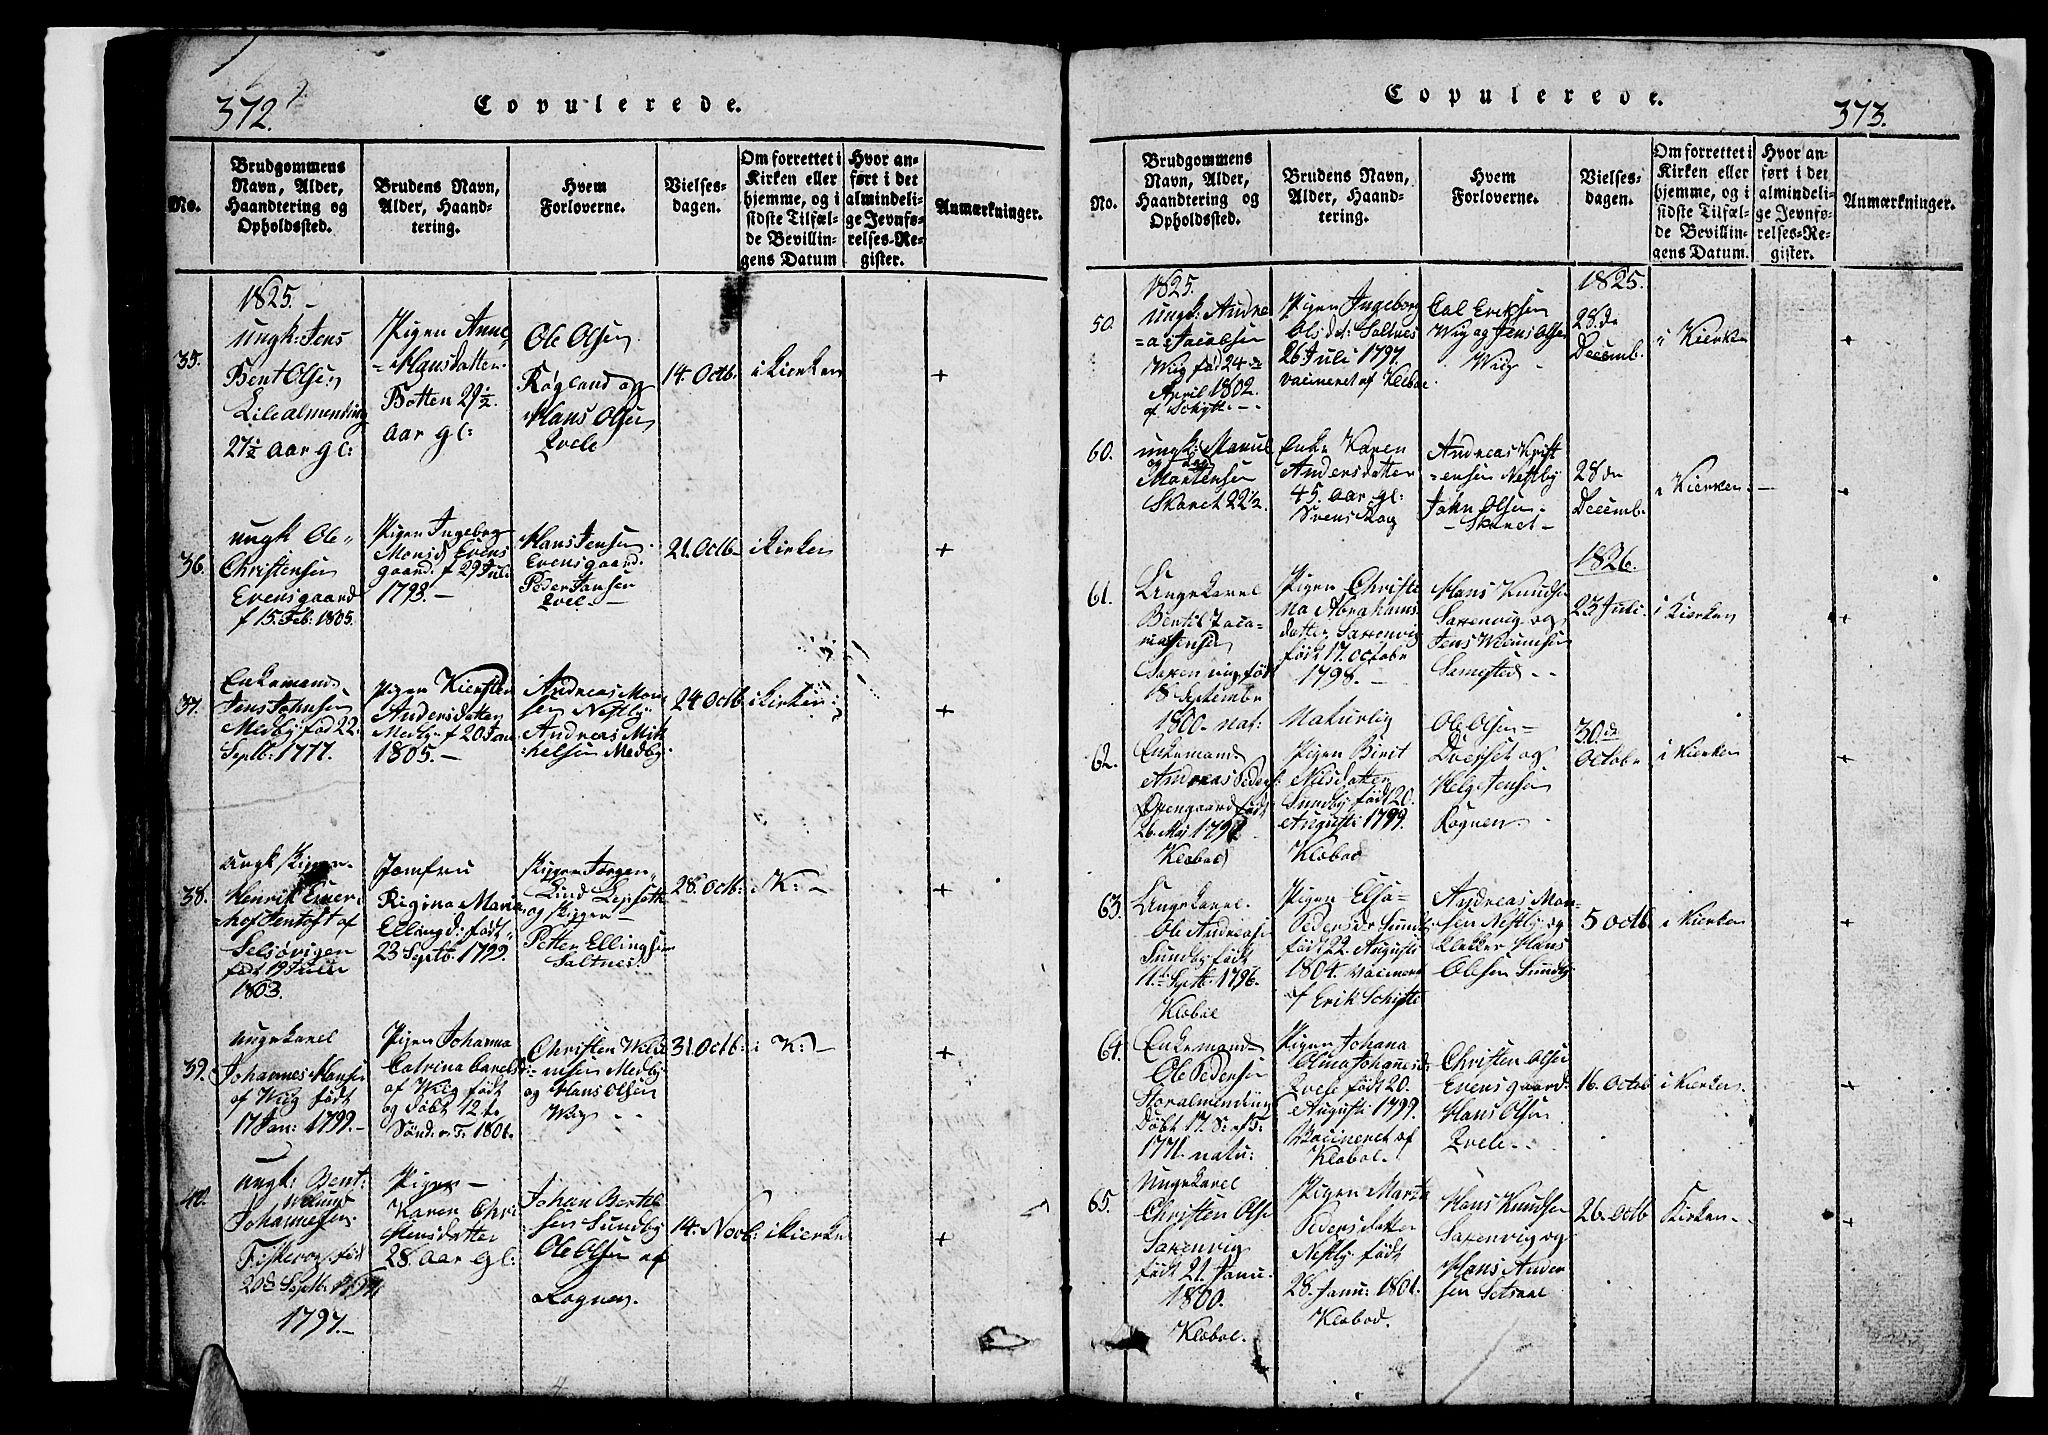 372.
Copulerede.
No.
Brudgommens
Navn, Alder,
Haandtering og
Opholdssted.
Brudens Navn,
Alder, Haand-
tering.
Hvem
Forloverne.
Vielses-
dagen.
Om forrettet i
Kirken eller
hjemme, og i
sidste Tilfæl-
de Bevillin-
gens Datum
Hvor an-
ført i det
almindeli-
ge Jevnfø-
relses-Re-
gister.
Anmærkninger.
1825.
35.
Ungk: Jens
Bent Olsen
Lilealmending
27½ Aar gl:
Pigen Anne
Hansdatter
Botten 29½
Aar gl:
Ole Olsen
Røgland og
Hans Olsen
Qvele
14. Octb.
i Kierken
+
36.
Ungk Ole
Christensen
Evensgaard
f 15. Feb: 1805.
Pigen Ingebog
Monsd Evens
gaard. f 29 Juli
1798.
Hans Jensen
Evensgaard.
Peder Jansen
Qvel.
21. Octb
i Kirken
+
37.
Enkemand
Jens Johnsen
Medby fød 22
Septb: 1777.
Pigen Kiersten
Andersdatter
Medby f 20 Jan
1805.
Andreas Mon
sen Nestby
Andreas Mik
helsen Medby
24 Octb
i Kirken
+
38.
Ungk Skipper
Henrik
hof Jentoft af
Selsøvigen
født 19 Julii
1803.
Jomfru
Rigina Maria
Ellingd: født
23 Septb. 1799.
Skipper Jørgen
Lund
og Skipper
Petter Ellingsen
Saltnes.
28. Octb:
i K:
+
39.
Ungekarel
Johannes Hansen
af Wiig født
17 Jan: 1799.
Pigen Johanna
Catrina Careld
af Wiig født
og døbt 12te
Sønd: e T: 1801.
Christen Wille
umsen Medby
og Hans Olsen
Wiig
31. Octb:
i K:
+
40.
Ungk: Bent
Johannesen
Fiskerog fød
20de Septb:
1797.
Pigen
Karen Chri
stensdatter
28 Aar gl:
Johan Bertel
sen Sundby
Ole Olsen af
Rognen.
14. Novb:
i Kierke
+
Copulerede.
373.
No.
Brudgommens
Navn, Alder,
Haandtering og
Opholdssted.
Brudens Navn,
Alder, Haand-
tering.
Hvem
Forloverne.
Vielses-
dagen.
Om forrettet i
Kirken eller
hjemme, og i
sidste Tilfæl-
de Bevillin-
gens Datum.
Hvor an-
ført i det
almindeli-
ge Jevnfø-
relses-Re-
gister.
Anmærkninger.
1825.
1825.
50.
Ungk: Andre
as Jacobsen
Wiig fød 24de
April 1802.
af Schytt.
Pigen Ingeborg
Olsdt: Saltnes
26 Juli 1797.
vacineret af Kleboe
Eriksen
Wiig og Jens Olsen
Wiig
28de
Decemb.
i Kierken
+
60.
Ungk:
Mortensen
Skaret 22½
Enke Karen
Andersdatter
45. Aar gl:
Svenskog
Andreas Krist
ensen Nestby
John Olsen
Skaret
28de
Decemb.
i Kierken
+
1826.
61.
Ungekarel
Bertil Zaca
riassen
Saxenvig, født
18 Septembr
1800. nat:
Pigen Christi
na Abrahams
datter Saxenvig
født 17. Octobr
1798.
Naturlig
Hans Knudsen
Saxenvig og
Jens Willumsen
23 Juli
i Kierken
+
62.
Enkemand
Andreas Peders:
født
26. Mai
Kløboe
Pigen Birit
Nilsdatter
Sundby født 20.
Augusti 1799.
Klobod
Ole Olsen
og
Helg Jensen
Rognen.
30de
Octobr
i Kierken
+
63.
Ungekarel
Ole Andreas
Sundby født
11te Septb. 1796.
Klobol
Pigen Elsa
Pedersdr Sundb
født 22. Augusti
1804. Vacineret
af Erik Schytte
Andreas Mon
sen Nestby og
Klokker Hans
Olsen Sundby
5 Octb
i Kierken
+
64.
Enkemand
Ole Pedersen
Storalmending
Døbt 17. S: ef T:
1771. natu:
Pigen Johana
Olma Johanesd
Qvele født 20.
Augusti 1799.
Vacineret af
Klobol.
Christen Olsen
Evensgaard.
Hans Olsen
Qvele.
16. Octb
i Kierken
+
65.
Ungekarel
Christen Olsen
Saxenvig
født 21. Janu.
1800.
Klobol.
Pigen Marta
Pedersdatter
Nestby født
28. Janu: 1801.
Klobod.
Hans Knudsen
Saxenvig og
Hans Ander
sen Setsaae
26. Octb
Kirken
+